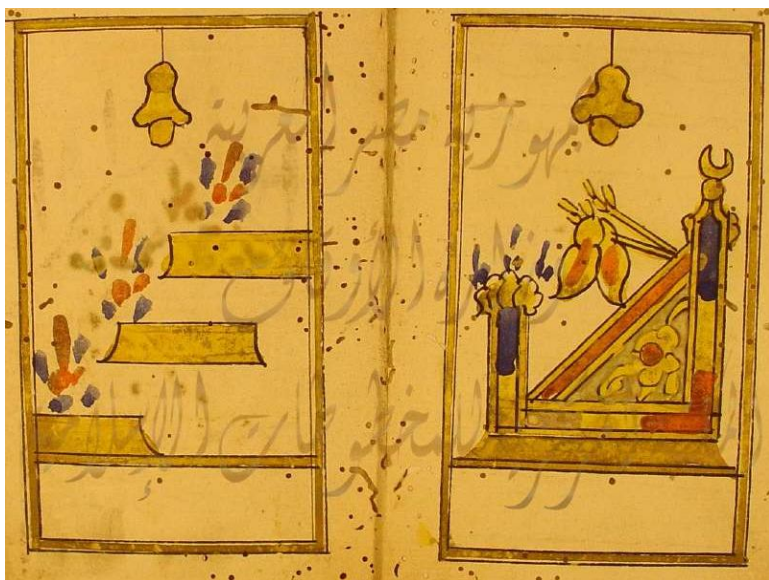 جمهورية مصر العربية
وزارة الأوقاف
للمخطوطات الإسلامية